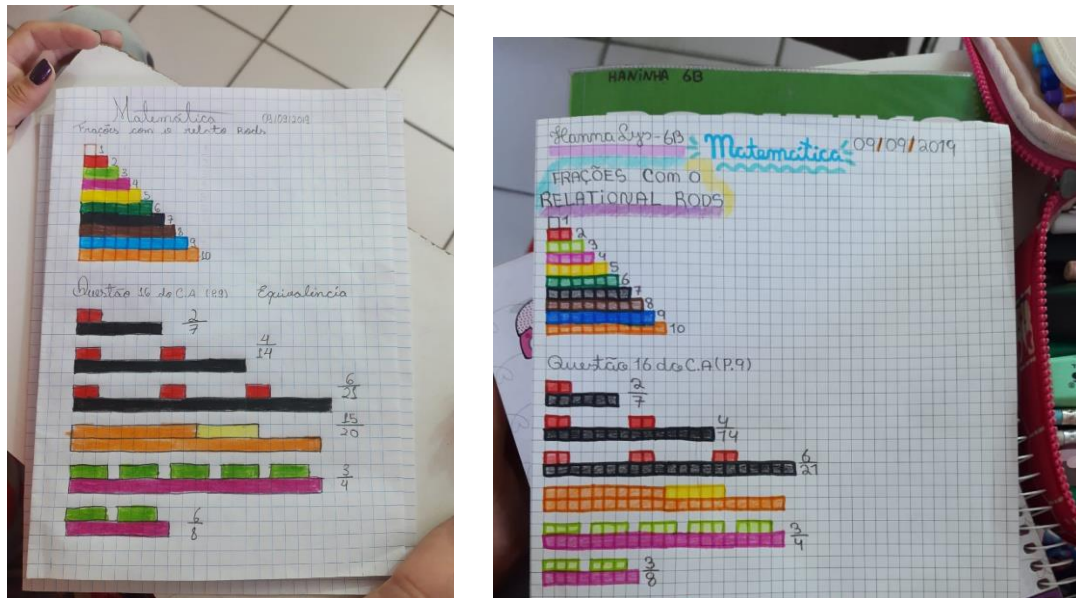 Matemática 09/09/2019
Frações com o relato Rods
1
2
3
4
5
6
7
8
9
10
Questão 16 do C.A (P.9) Equivalência
2
7
4
14
6
21
15
20
3
4
6
8
HANiNHA 6B
Hanna Lys-6B Matemática 09/09/2019
FRAÇÕES Com O
RELATIONAL RODS
1
2
3
4
5
6
7
8
9
10
Questão 16 do C.A (P.9)
2
7
4
14
6
21
3
4
3
8